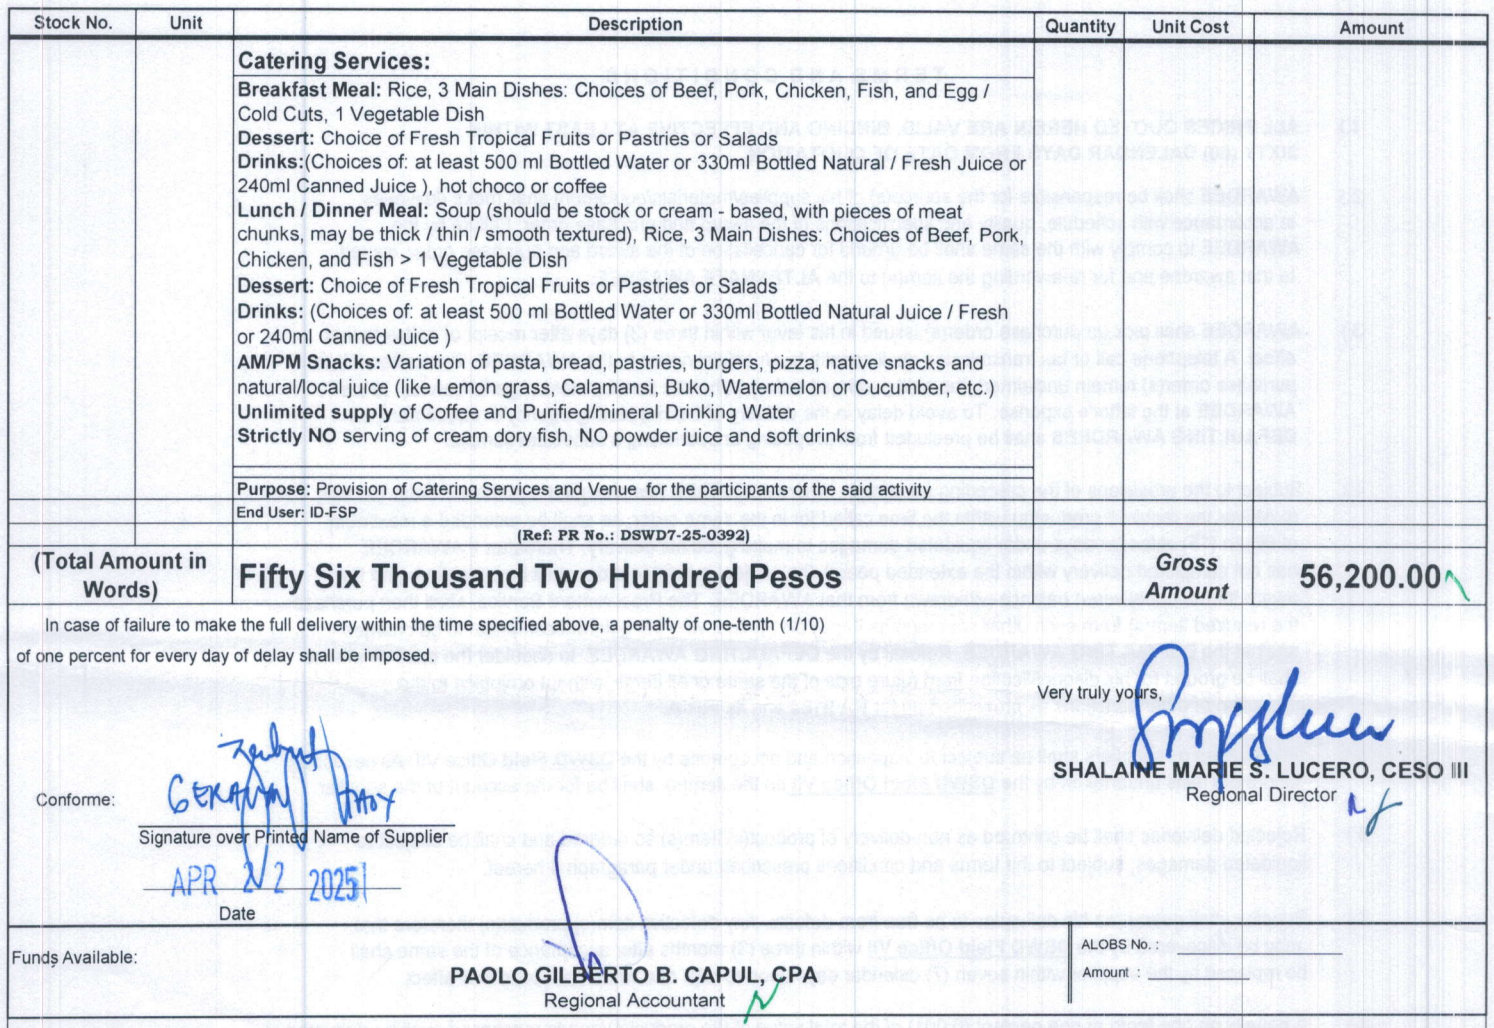 Stock No. Unit Description Quantity Unit Cost Amount
Catering Services:
Breakfast Meal: Rice, 3 Main Dishes: Choices of Beef, Pork, Chicken, Fish, and Egg /
Cold Cuts, 1 Vegetable Dish
Dessert: Choice of Fresh Tropical Fruits or Pastries or Salads
Drinks:(Choices of: at least 500 ml Bottled Water or 330ml Bottled Natural / Fresh Juice or
240ml Canned Juice ), hot choco or coffee
Lunch / Dinner Meal: Soup (should be stock or cream - based, with pieces of meat
chunks, may be thick / thin / smooth textured), Rice, 3 Main Dishes: Choices of Beef, Pork,
Chicken, and Fish > 1 Vegetable Dish
Dessert: Choice of Fresh Tropical Fruits or Pastries or Salads
Drinks: (Choices of: at least 500 ml Bottled Water or 330ml Bottled Natural Juice / Fresh
or 240ml Canned Juice )
AM/PM Snacks: Variation of pasta, bread, pastries, burgers, pizza, native snacks and
natural/local juice (like Lemon grass, Calamansi, Buko, Watermelon / Cucumber, etc.)
Unlimited supply of Coffee and Purified/mineral Drinking Water
Strictly NO serving of cream dory fish, NO powder juice and soft drinks
Purpose: Provision of Catering Services and Venue for the participants of the said activity
End User: ID-FSP
(Ref: PR No.: DSWD7-25-0392)
(Total Amount in Words) Fifty Six Thousand Two Hundred Pesos Gross Amount 56,200.00
In case of failure to make the full delivery within the time specified above, a penalty of one-tenth (1/10)
of one percent for every day of delay shall be imposed.
Very truly yours,
SHALAINE MARIE S. LUCERO, CESO III
Regional Director
Conforme:
Signature over Printed Name of Supplier
APR 22 2025
Date
Funds Available:
PAOLO GILBERTO B. CAPUL, CPA
Regional Accountant
ALOBS No. :
Amount :